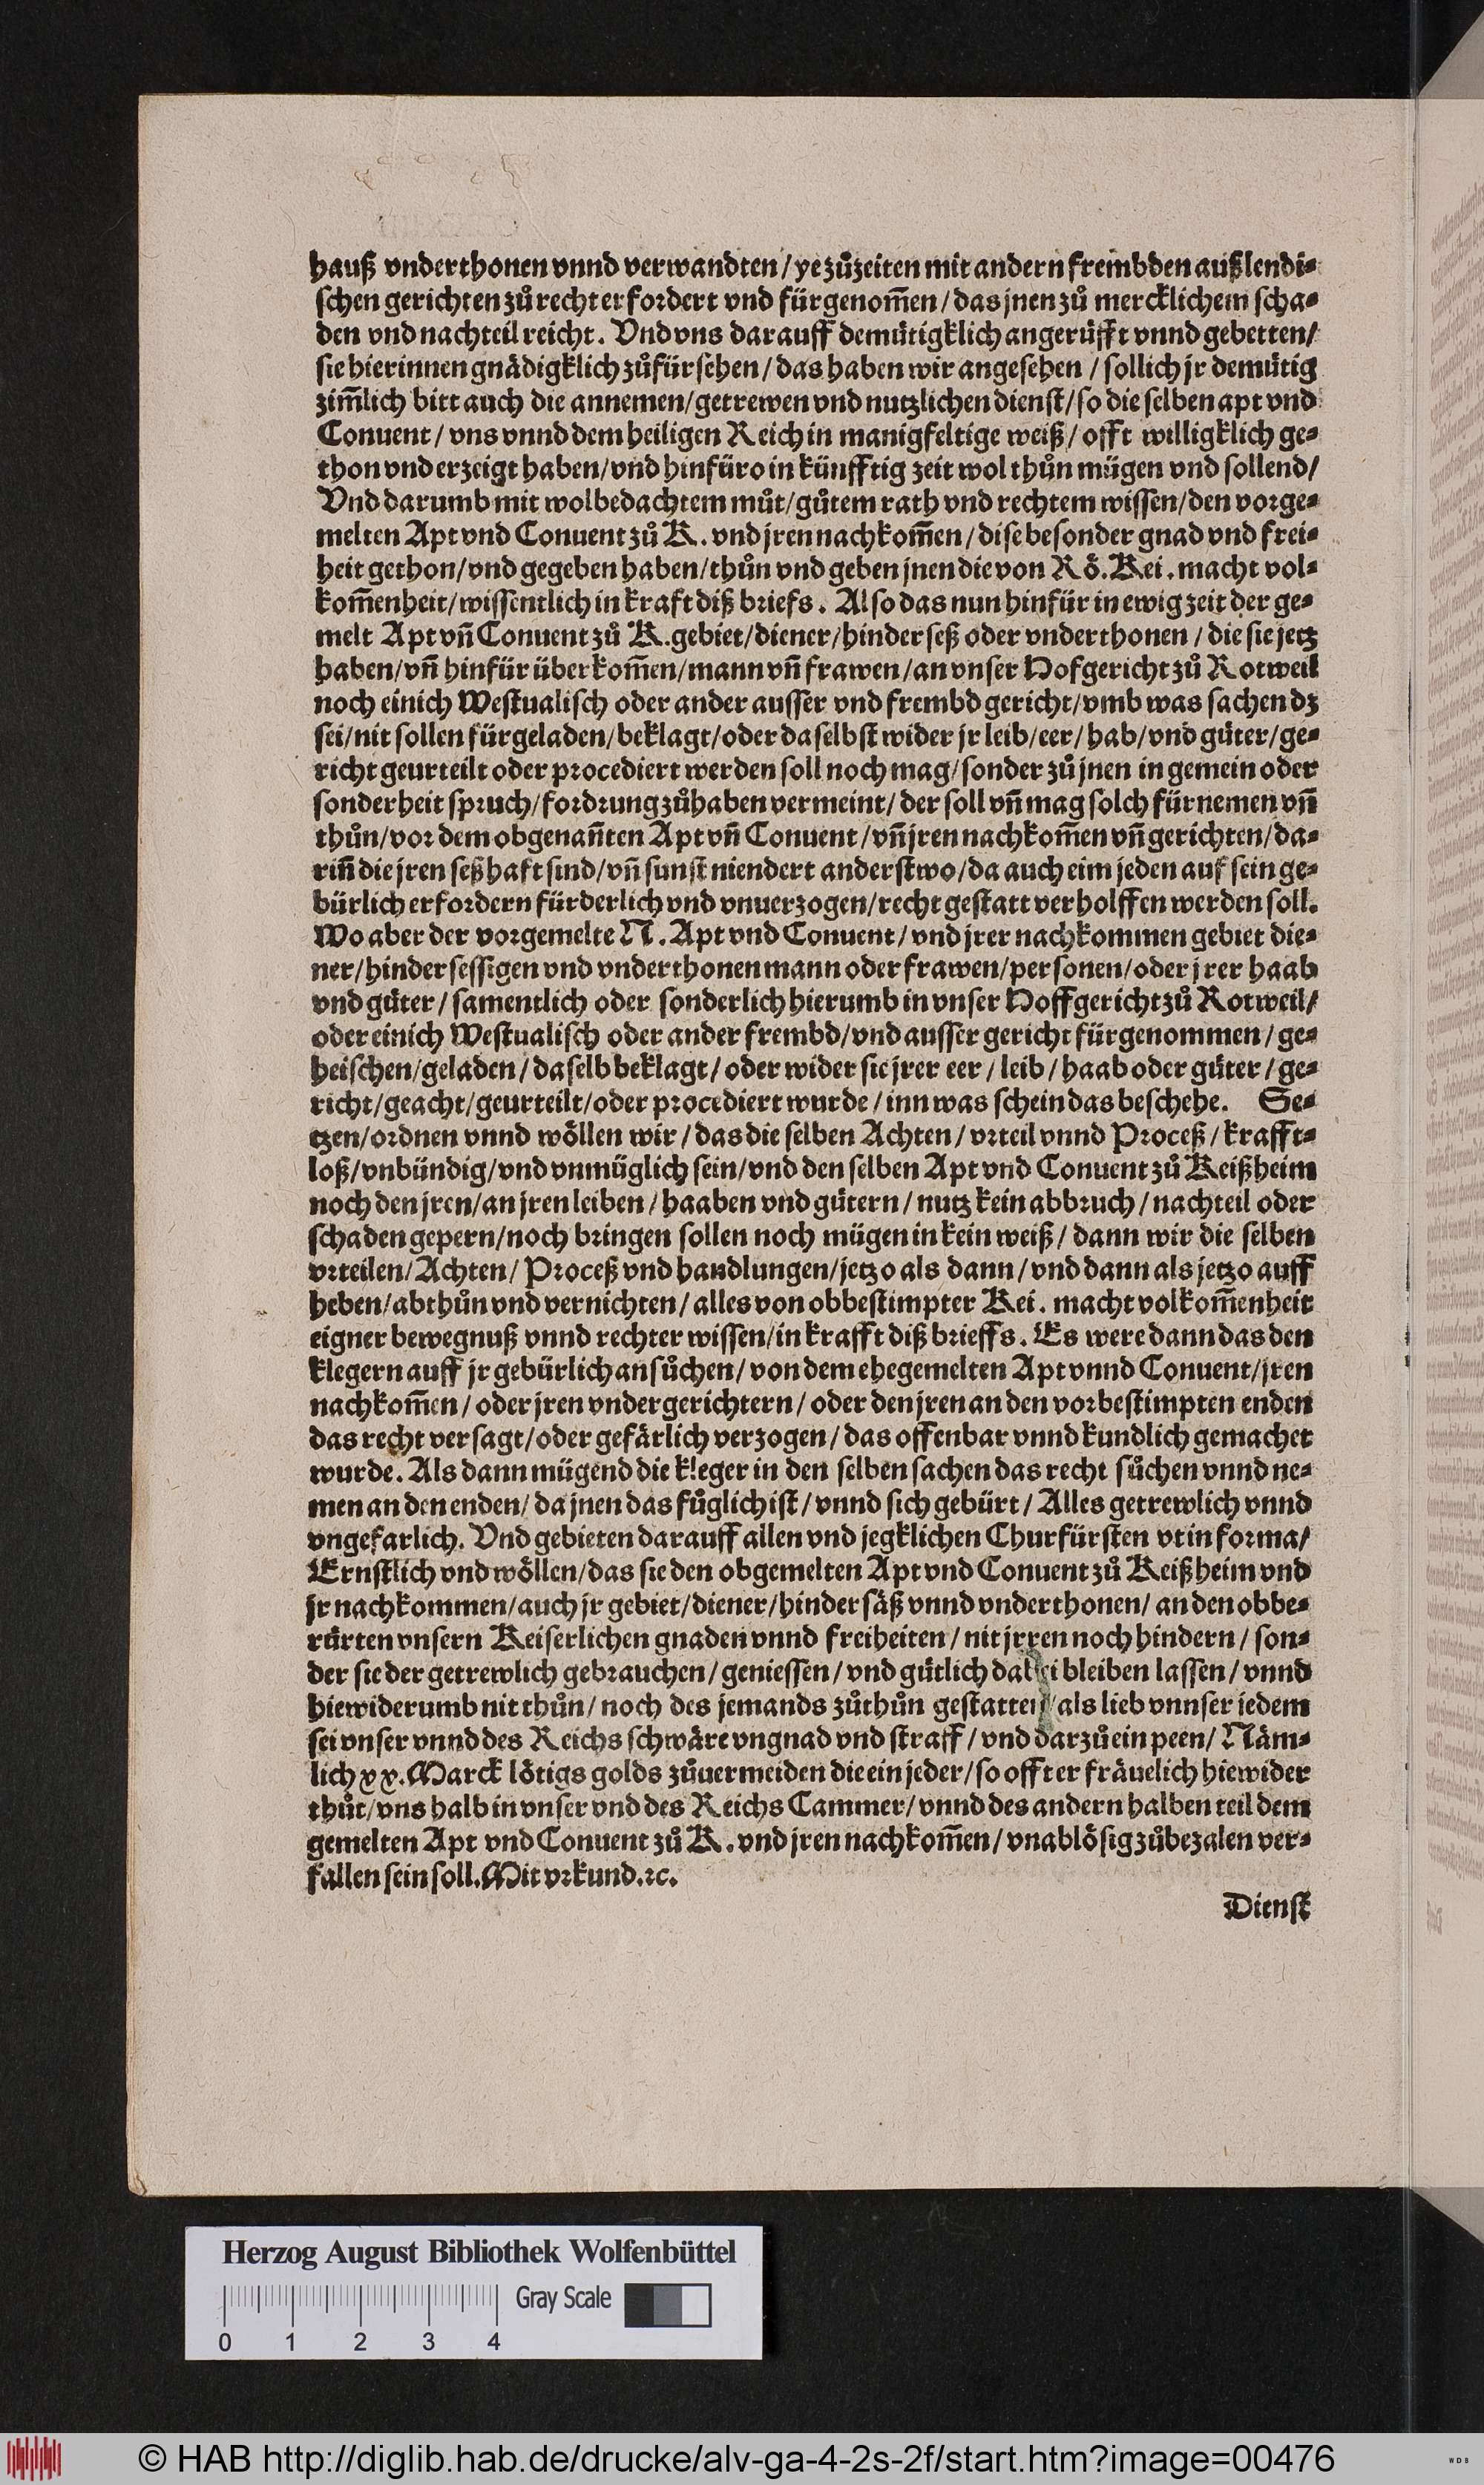 hauß vnderthonen vnnd verwandten / ye zůzeiten mit andern frembden außlendi⸗
schen gerichten zů recht erfordert vnd fürgenom̃en / das jnen zů mercklichem scha⸗
den vnd nachteil reicht. Vnd vns darauff demütigklich angerüfft vnnd gebetten/
sie hierinnen gnädigklich zůfürsehen / das haben wir angesehen / sollich jr demütig
zim̃lich bitt auch die annemen/getrewen vnd nutzlichen dienst/so die selben apt vnd
Conuent / vns vnnd dem heiligen Reich in manigfeltige weiß / offt willigklich ge⸗
thon vnd erzeigt haben/vnd hinfüro in künfftig zeit wol thůn mügen vnd sollend/
Vnd darumb mit wolbedachtem můt/gůtem rath vnd rechtem wissen/den vorge⸗
melten Apt vnd Conuent zů K. vnd jren nachkom̃en / dise besonder gnad vnd frei⸗
heit gethon/vnd gegeben haben/thůn vnd geben jnen die von Rö. Kei. macht vol⸗
kom̃enheit/wissentlich in kraft diß briefs. Also das nun hinfür in ewig zeit der ge⸗
melt Apt vn̄ Conuent zů K. gebiet/diener/hinderseß oder vnderthonen / die sie jetz
haben/vn̄ hinfür überkom̃en/mann vn̄ frawen/an vnser Hofgericht zů Rotweil
noch einich Westualisch oder ander ausser vnd frembd gericht/vmb was sachen dz
sei/nit sollen fürgeladen/beklagt/oder daselbst wider jr leib/eer/hab/vnd güter/ge⸗
richt geurteilt oder procediert werden soll noch mag/sonder zů jnen in gemein oder
sonderheit spruch/fordrung zůhaben vermeint/ der soll vn̄ mag solch fürnemen vn̄
thůn/vor dem obgenan̄ten Apt vn̄ Conuent /vn̄ jren nachkom̃en vn̄ gerichten/da⸗
rin̄ die jren seßhaft sind/vn̄ sunst niendert anderstwo/da auch eim jeden auf sein ge⸗
bürlich erfordern fürderlich vnd vnuerzogen/recht gestatt verholffen werden soll.
Wo aber der vorgemelte N. Apt vnd Conuent/ vnd jrer nachkommen gebiet die⸗
ner/hindersessigen vnd vnderthonen mann oder frawen/personen/oder jrer haab
vnd güter / samentlich oder sonderlich hierumb in vnser Hoffgericht zů Rotweil/
oder einich Westualisch oder ander frembd/vnd ausser gericht fürgenommen / ge⸗
heischen/geladen / daselb beklagt/ oder wider sie jrer eer / leib / haab oder güter / ge⸗
richt/geacht/geurteilt/oder procediert wurde / inn was schein das beschehe. Se⸗
tzen/ordnen vnnd wöllen wir / das die selben Achten / vrteil vnnd Proceß / krafft⸗
loß/vnbündig/vnd vnmüglich sein/vnd den selben Apt vnd Conuent zů Keißheim
noch den jren/an jren leiben / haaben vnd gütern / nutz kein abbruch / nachteil oder
schaden gepern/noch bringen sollen noch mügen in kein weiß / dann wir die selben
vrteilen/Achten/ Proceß vnd handlungen/jetzo als dann / vnd dann als jetzo auff
heben/abthůn vnd vernichten / alles von obbestimpter Kei. macht volkom̃enheit
eigner bewegnuß vnnd rechter wissen/in krafft diß brieffs. Es were dann das den
klegern auff jr gebürlich ansůchen/ von dem ehegemelten Apt vnnd Conuent/jren
nachkom̃en / oder jren vndergerichtern / oder den jren an den vorbestimpten enden
das recht versagt/oder gefärlich verzogen / das offenbar vnnd kundlich gemachet
wurde. Als dann mügend die kleger in den selben sachen das recht sůchen vnnd ne⸗
men an den enden/ da jnen das fůglich ist / vnnd sich gebürt / Alles getrewlich vnnd
vngefarlich. Vnd gebieten darauff allen vnd jegklichen Churfürsten vt in forma/
Ernstlich vnd wöllen/das sie den obgemelten Apt vnd Conuent zů Keißheim vnd
jr nachkommen/auch jr gebiet/diener/hindersäß vnnd vnderthonen/ an den obbe⸗
rürten vnsern Keiserlichen gnaden vnnd freiheiten / nit jrren noch hindern / son⸗
der sie der getrewlich gebrauchen/geniessen/vnd gütlich dabei bleiben lassen / vnnd
hiewiderumb nit thůn / noch des jemands zůthůn gestatten/als lieb vnnser jedem
sei vnser vnnd des Reichs schwäre vngnad vnd straff / vnd darzů ein peen/ Näm⸗
lich xx. Marck lötigs golds zůuermeiden die ein jeder/so offt er fräuelich hiewider
thůt/vns halb in vnser vnd des Reichs Cammer/ vnnd des andern halben teil dem
gemelten Apt vnd Conuent zů K. vnd jren nachkom̃en/ vnablösig zůbezalen ver⸗
fallen sein soll. Mit vrkund.ꝛc.
Dienst
Herzog August Bibliothek Wolfenbüttel
Gray Scale
0 1 2 3 4
© HAB http://diglib.hab.de/drucke/alv-ga-4-2s-2f/start.htm?image=00476
W D B